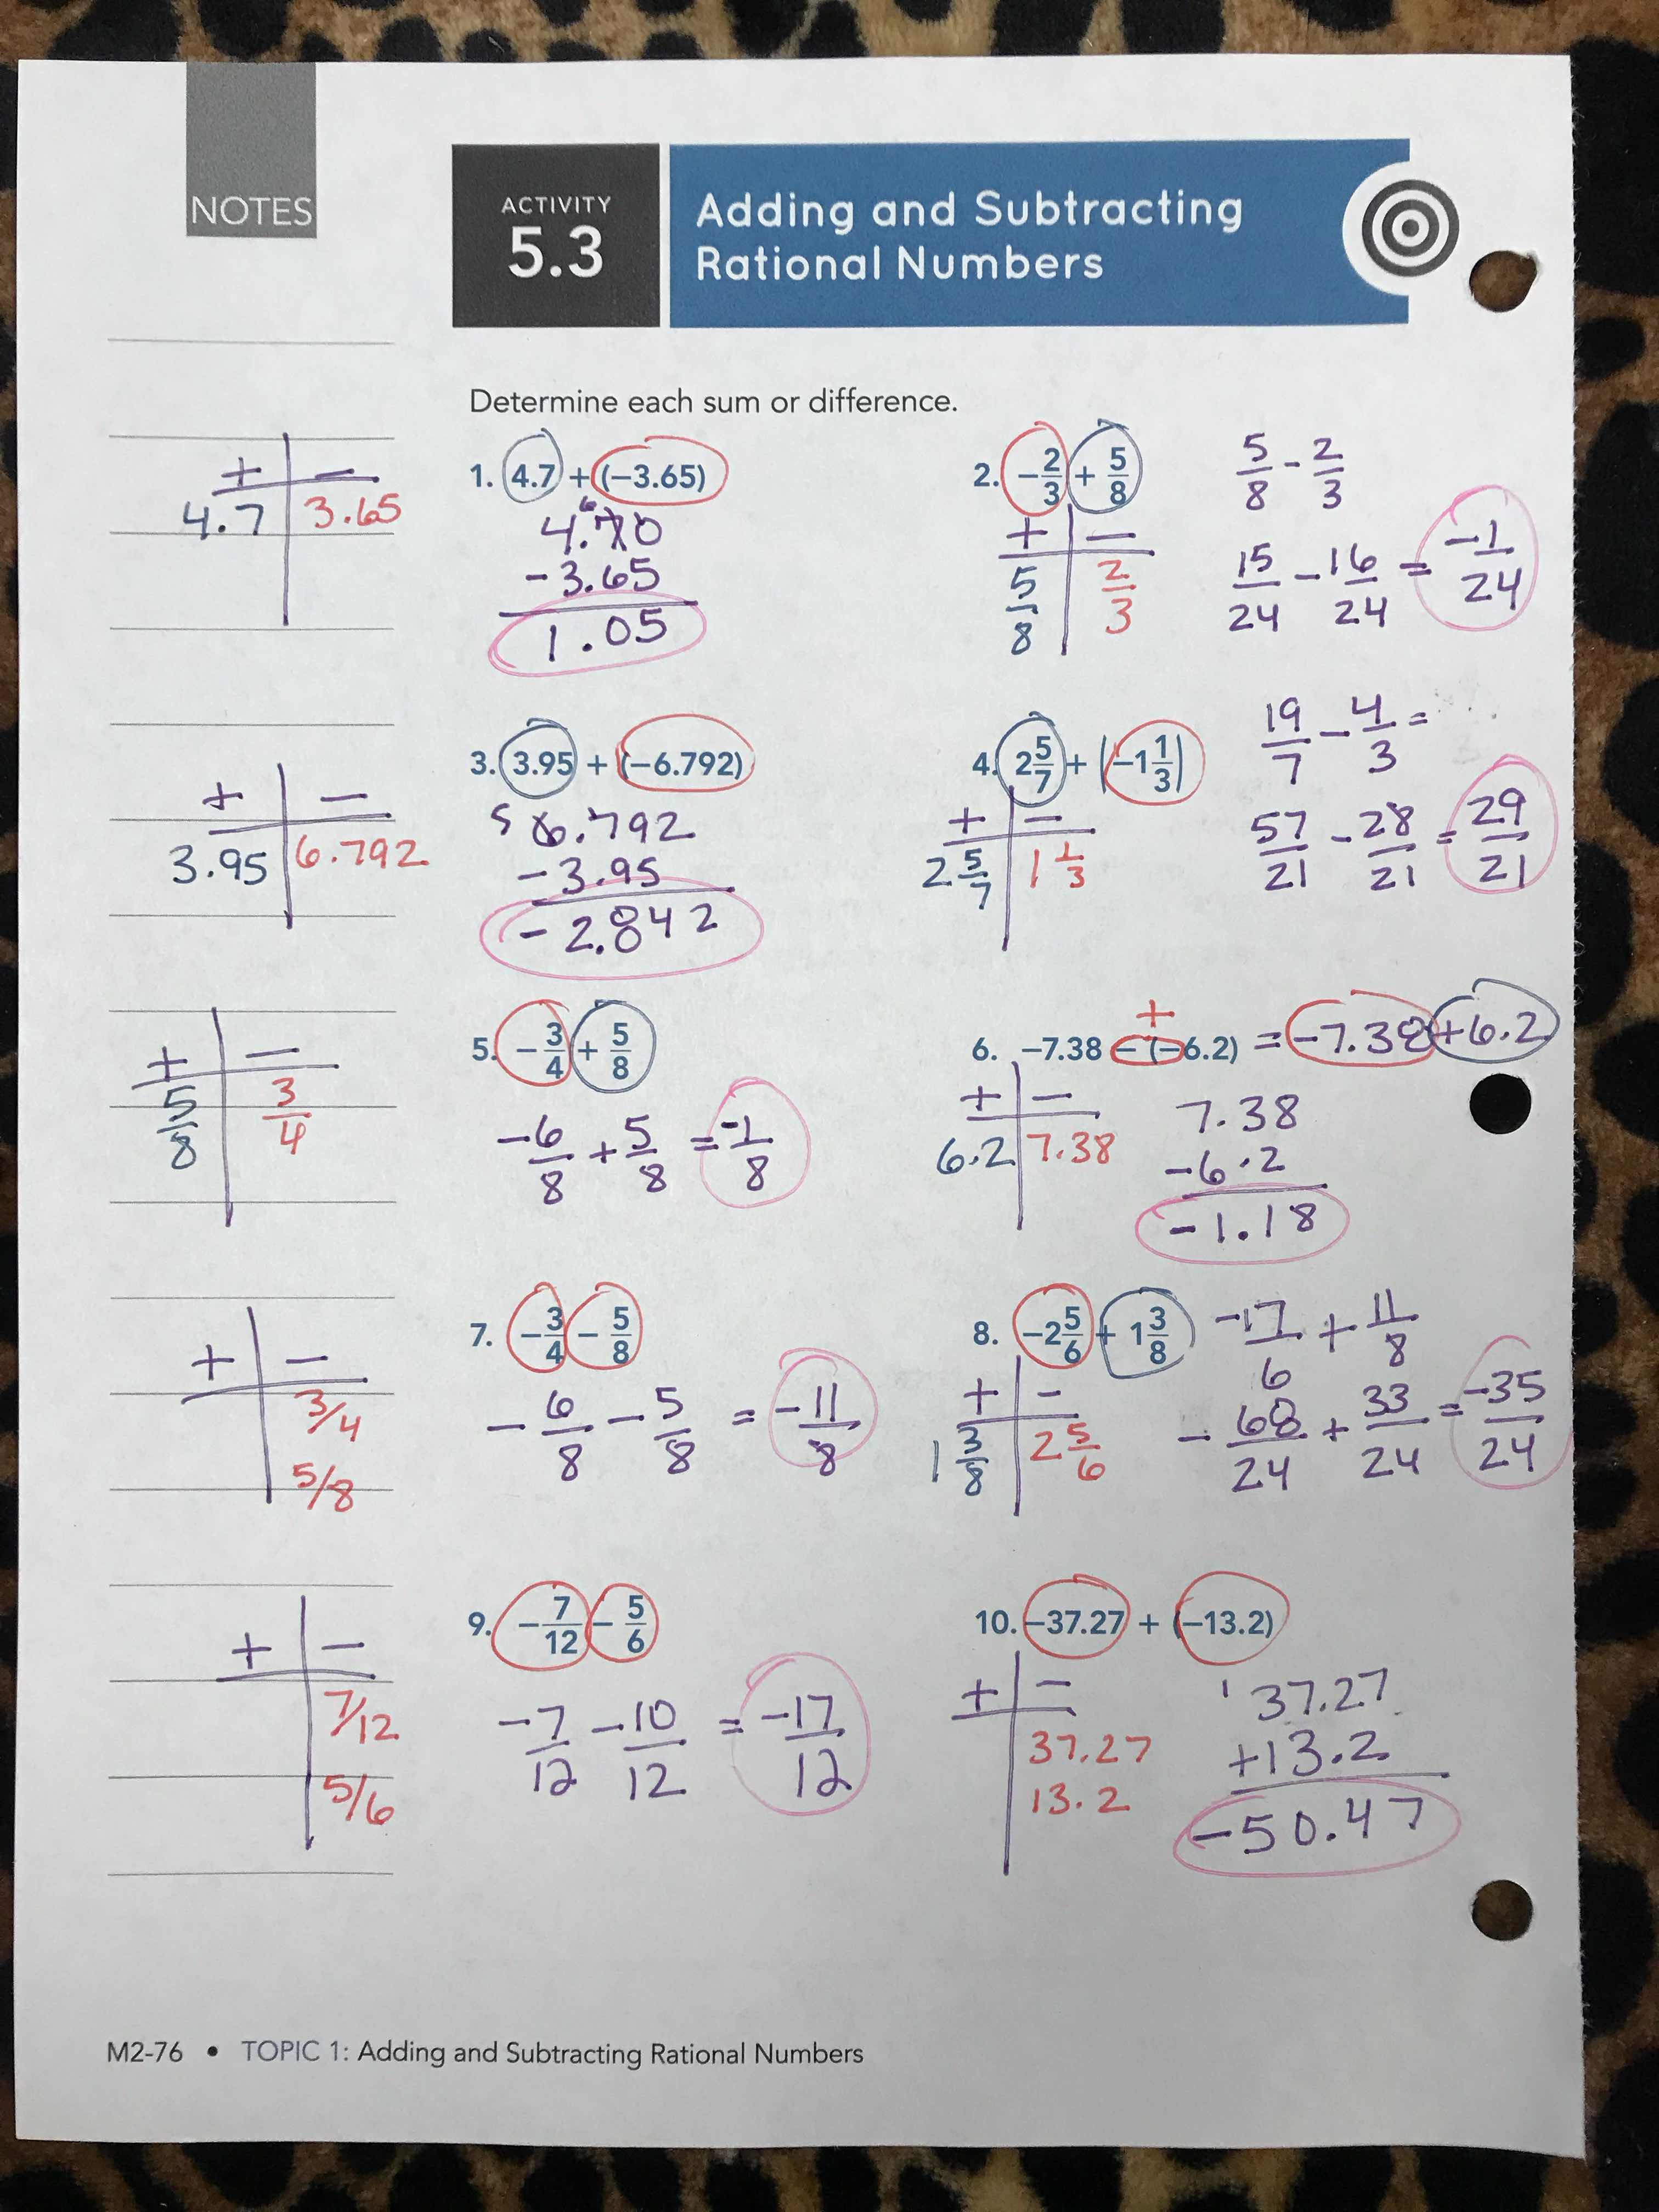 NOTES
ACTIVITY
5.3
Adding and Subtracting
Rational Numbers
Determine each sum or difference.
+ | −
4.7 | 3.65
1. 4.7 + (−3.65)
6
4.70
− 3.65
1.05
2. −2/3 + 5/8
+ | −
5/8 | 2/3
5/8 − 2/3
15/24 − 16/24 = −1/24
+ | −
3.95 | 6.792
3. 3.95 + (−6.792)
5 6.792
− 3.95
− 2.842
4. 2 5/7 + (−1 1/3)
+ | −
2 5/7 | 1 1/3
19/7 − 4/3 =
57/21 − 28/21 = 29/21
+ | −
5/8 | 3/4
5. −3/4 + 5/8
−6/8 + 5/8 = −1/8
+
6. −7.38 − (−6.2) = −7.38 + 6.2
+ | −
6.2 | 7.38
7.38
− 6.2
− 1.18
+ | −
3/4
5/8
7. −3/4 − 5/8
−6/8 − 5/8 = −11/8
8. −2 5/6 + 1 3/8
+ | −
1 3/8 | 2 5/6
−17/6 + 11/8
−68/24 + 33/24 = −35/24
+ | −
7/12
5/6
9. −7/12 − 5/6
−7/12 − 10/12 = −17/12
10. −37.27 + (−13.2)
+ | −
37.27
13.2
1 37.27
+13.2
−50.47
M2-76 • TOPIC 1: Adding and Subtracting Rational Numbers